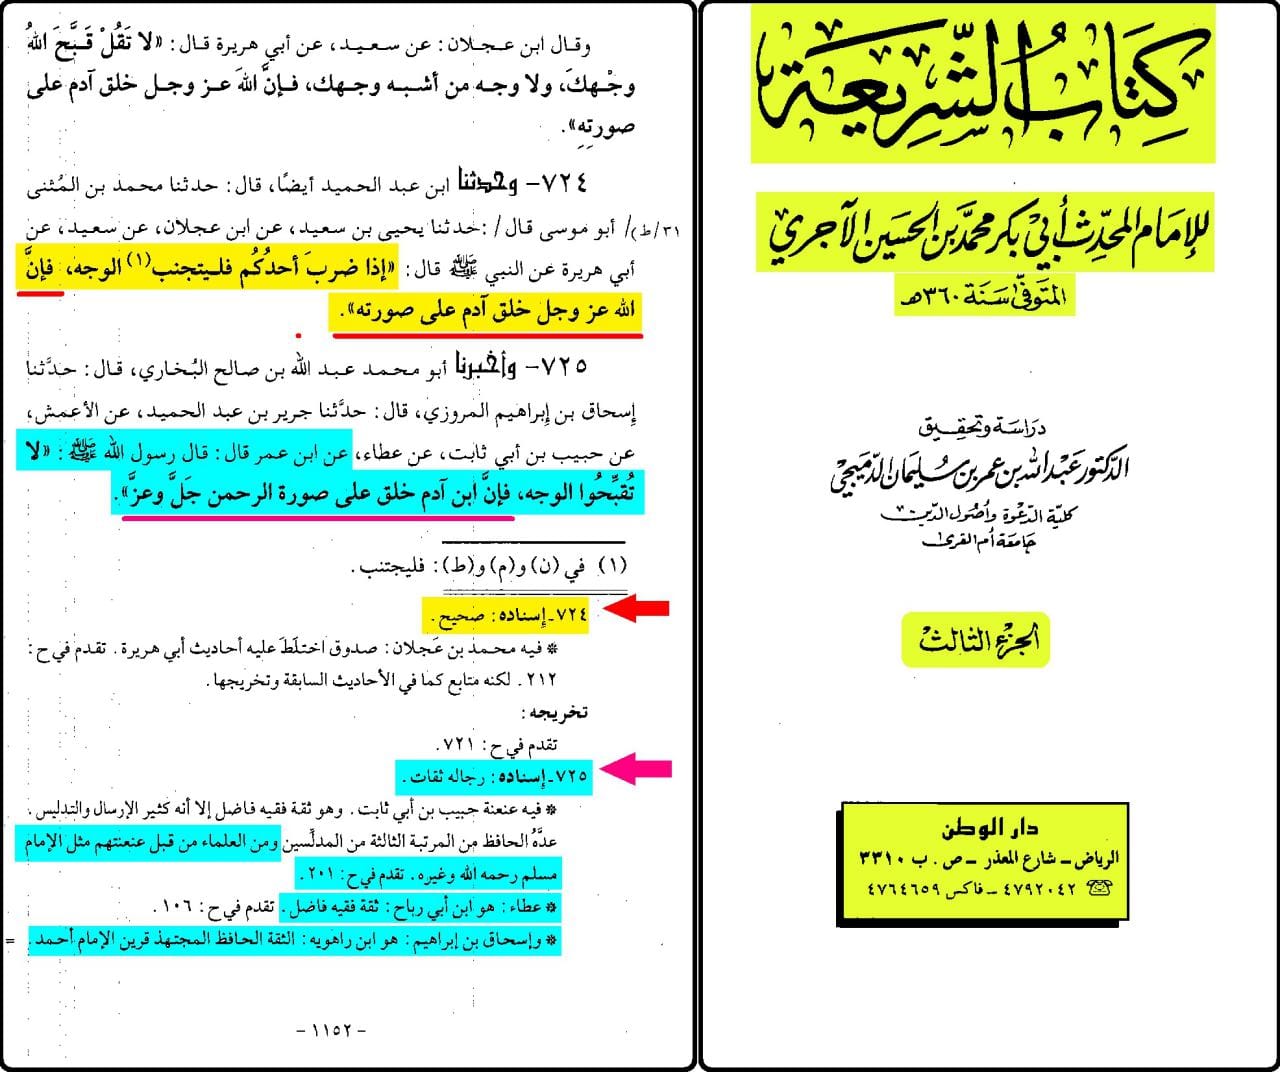 كتاب الشريعة
للإمام المحدث أبي بكر محمد بن الحسين الآجري
المتوفى سنة ٣٦٠هـ
دراسة وتحقيق
الدكتور عبد الله بن عمر بن سليمان الدميجي
كلية الدعوة وأصول الدين
جامعة أم القرى
الجزء الثالث
دار الوطن
الرياض – شارع المعذر – ص . ب ٣٣١٠
☎ ٤٧٩٢٠٤٢ – فاكس ٤٧٦٤٦٥٩
وقال ابن عجلان: عن سعيد، عن أبي هريرة قال: «لا تَقُلْ قَبَّحَ اللهُ
وجْهكَ، ولا وجه من أشبه وجهك، فإنَّ اللهَ عز وجل خلق آدم على
صورتِهِ».
٧٢٤– وحدثنا ابن عبد الحميد أيضًا، قال: حدثنا محمد بن المُثنى
(٣١/ط) / أبو موسى قال /: حدثنا يحيى بن سعيد، عن ابن عجلان، عن سعيد، عن
أبي هريرة عن النبي ﷺ قال: «إذا ضربَ أحدُكُم فليتجنب(١) الوجه، فإنَّ
الله عز وجل خلق آدم على صورته».
٧٢٥– وأخبرنا أبو محمد عبد الله بن صالح البُخاري، قال: حدَّثنا
إسحاق بن إبراهيم المروزي، قال: حدَّثنا جرير بن عبد الحميد، عن الأعمش،
عن حبيب بن أبي ثابت، عن عطاء، عن ابن عمر قال: قال رسول الله ﷺ: «لا
تُقبِّحُوا الوجه، فإنَّ ابن آدم خلق على صورة الرحمن جَلَّ وعزَّ».
(١) في (ن) و(م) و(ط): فليجتنب.
٧٢٤ـ إسناده: صحيح.
* فيه محمد بن عَجلان: صدوق اختلَطَ عليه أحاديث أبي هريرة. تقدم في ح:
٢١٢. لكنه متابع كما في الأحاديث السابقة وتخريجها.
تخريجه:
تقدم في ح: ٧٢١.
٧٢٥ـ إسناده: رجاله ثقات.
* فيه عنعنة حبيب بن أبي ثابت. وهو ثقة فقيه فاضل إلا أنه كثير الإرسال والتدليس.
عدَّهُ الحافظ من المرتبة الثالثة من المدلِّسين ومن العلماء من قبل عنعنتهم مثل الإمام
مسلم رحمه الله وغيره. تقدم في ح: ٢٠١.
* عطاء: هو ابن أبي رباح: ثقة فقيه فاضل. تقدم في ح: ١٠٦.
* وإسحاق بن إبراهيم: هو ابن راهويه: الثقة الحافظ المجتهذ قرين الإمام أحمد. =
– ١١٥٢ –